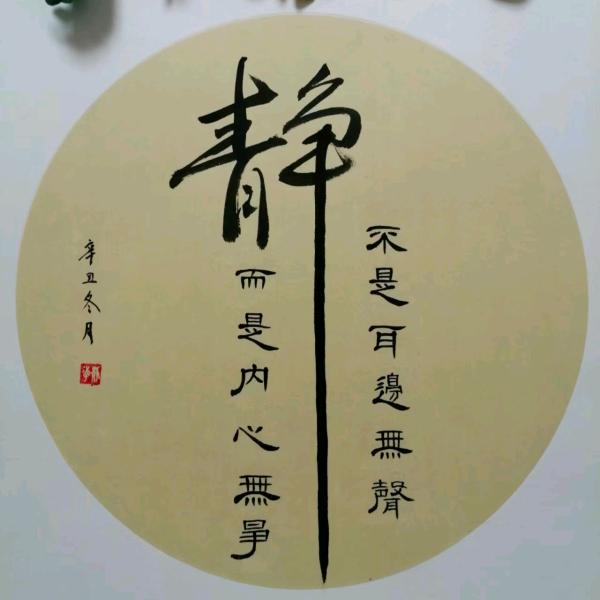 静
不是耳邊無聲
而是内心無爭
辛丑冬月